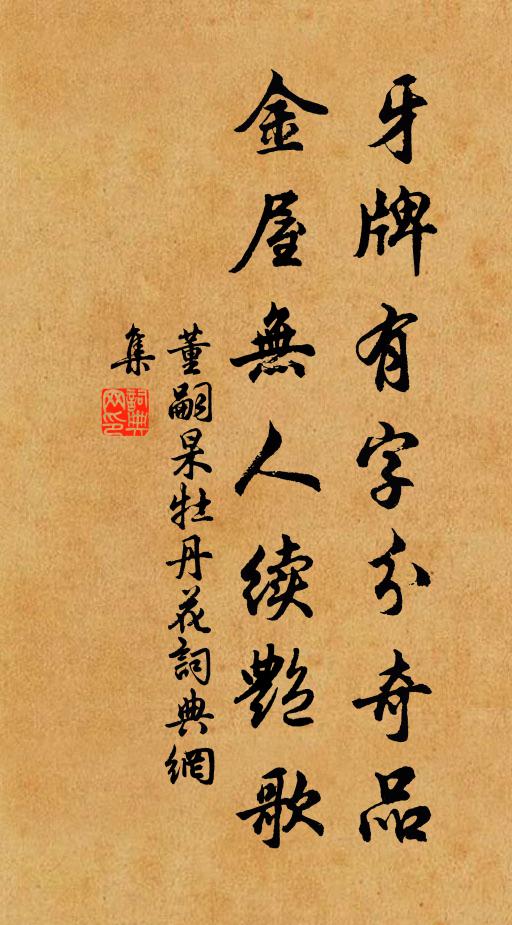 牙牌有字分奇品
金屋無人续艷歌
董嗣杲牡丹花詞典網
集
詞典
网印